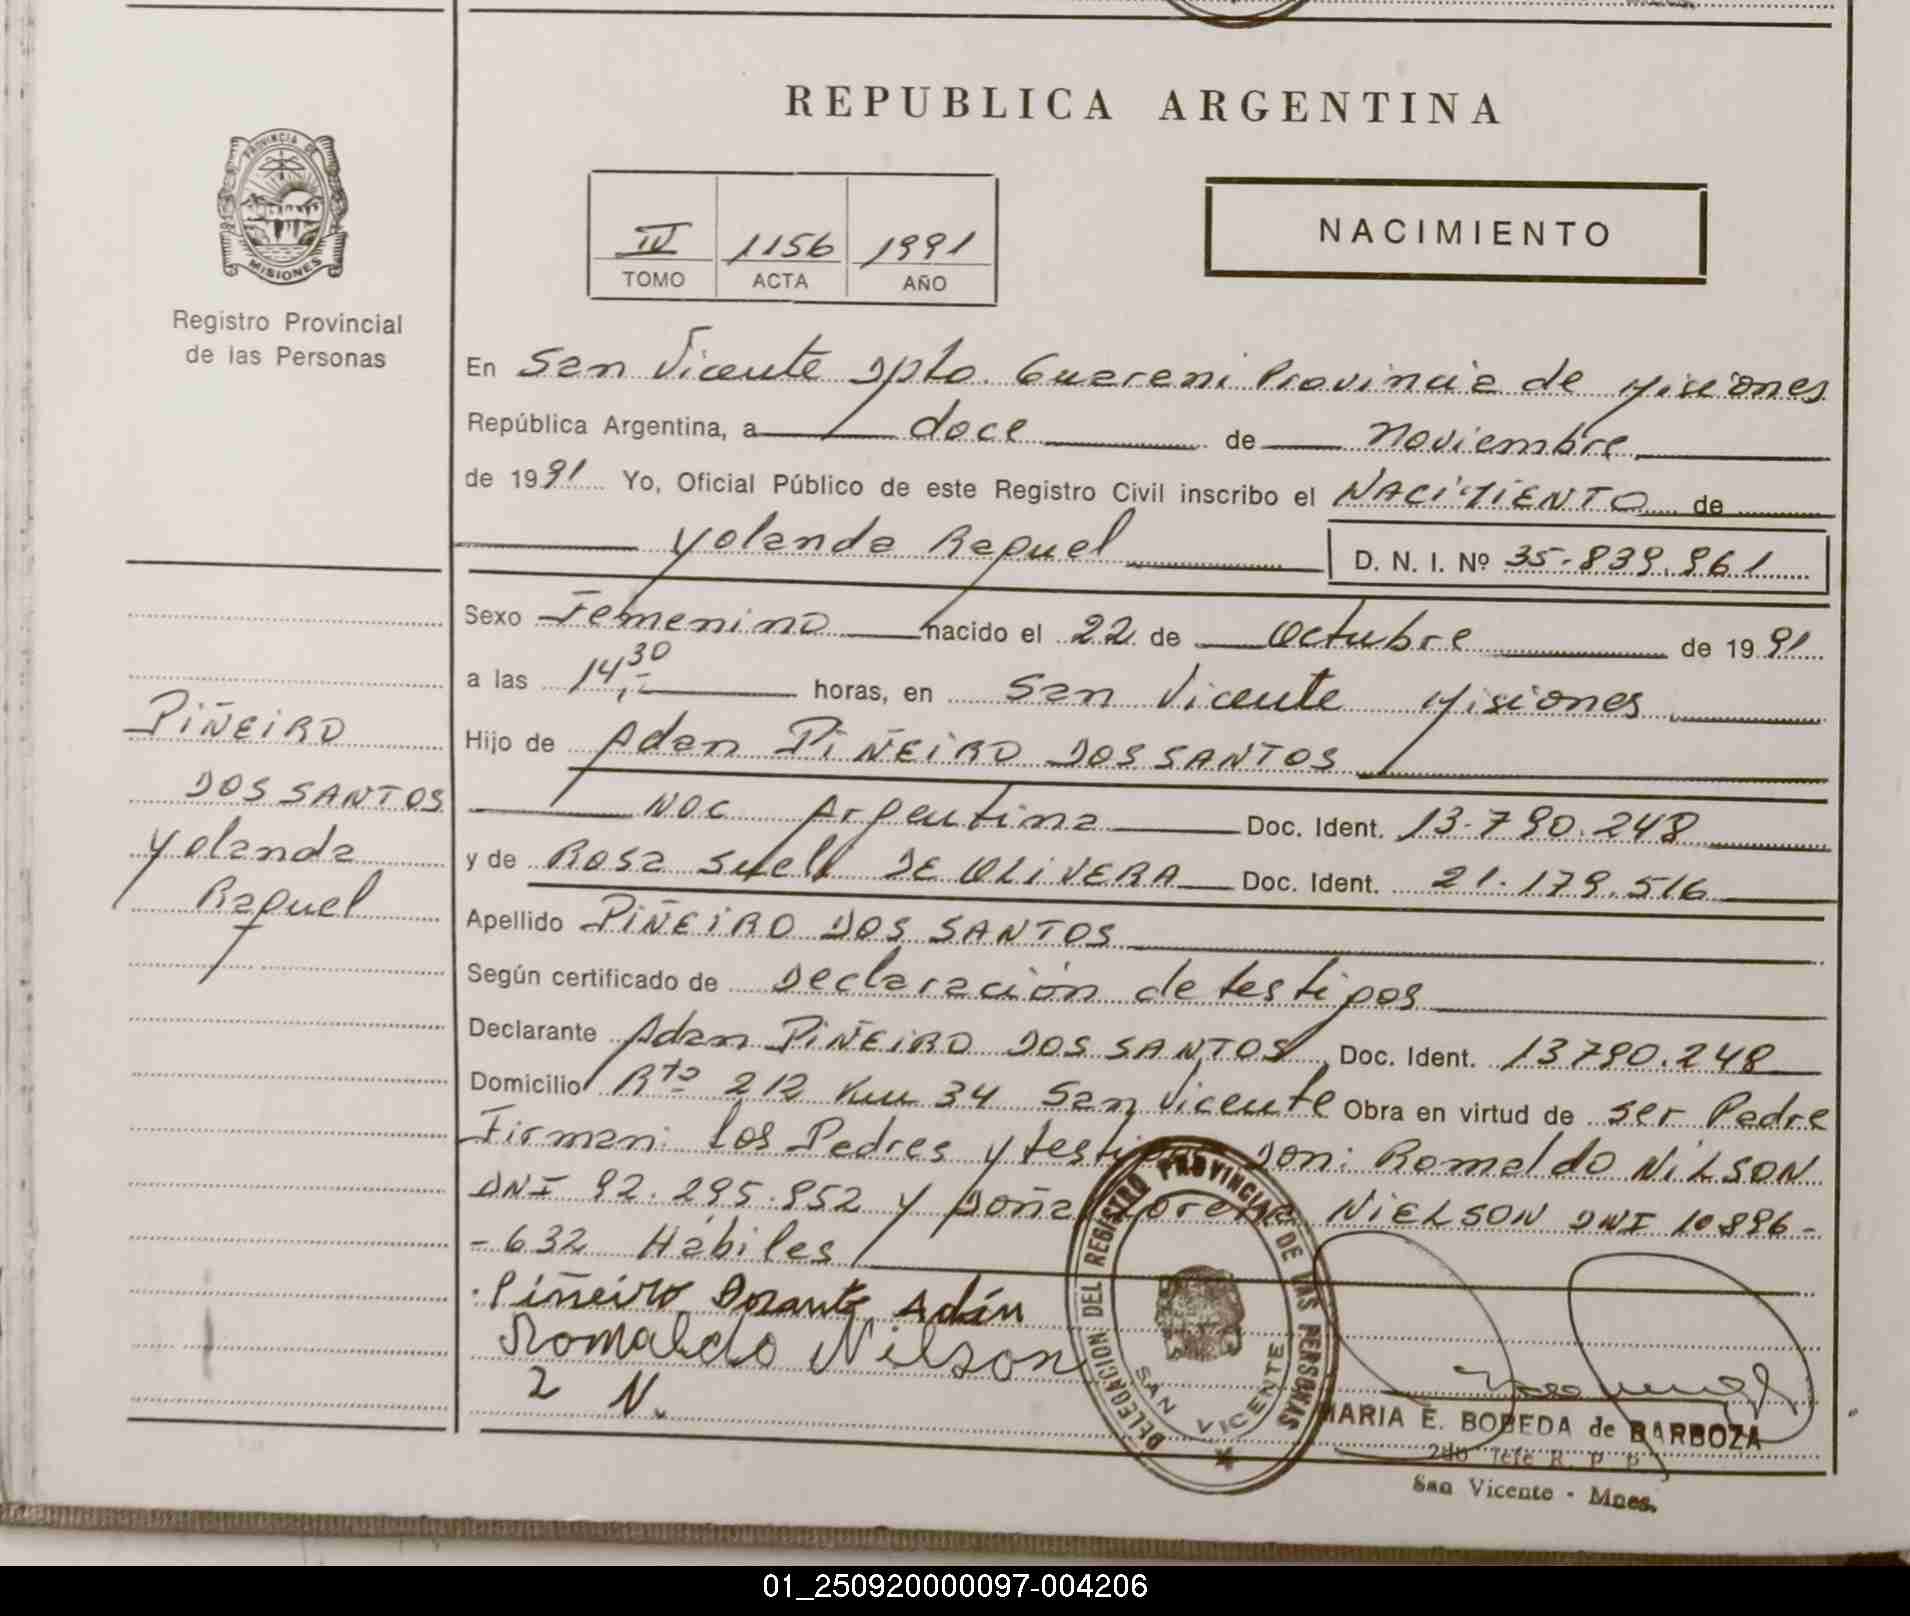 REPUBLICA ARGENTINA
PROVINCIA DE
MISIONES
Registro Provincial
de las Personas
IV 1156 1991
TOMO ACTA AÑO
NACIMIENTO
En San Vicente Dpto. Guarani Provincia de Misiones
República Argentina, a doce de Noviembre
de 1991 Yo, Oficial Público de este Registro Civil inscribo el NACIMIENTO de
Yolanda Raquel D. N. I. Nº 35.839.961
Sexo Femenino nacido el 22 de Octubre de 1991
a las 14,30 horas, en San Vicente Misiones
Hijo de Adan PIÑEIRO DOS SANTOS
Nac Argentina Doc. Ident. 13.790.248
y de Rosa Sueli DE OLIVERA Doc. Ident. 21.179.516
Apellido PIÑEIRO DOS SANTOS
Según certificado de Declaración de testigos
Declarante Adan PIÑEIRO DOS SANTOS Doc. Ident. 13790.248
Domicilio Rta 212 Km 34 San Vicente Obra en virtud de ser Padre
Firman: los Padres y testigos Don: Romaldo NILSON
DNI 92.295.952 y Doña Lorena NIELSON DNI 10896-
-632 Hábiles
PIÑEIRO
DOS SANTOS
Yolanda
Raquel
Piñeiro Dosanto Adán
Romaldo Nilson
2 N.
DELEGACION DEL REGISTRO PROVINCIAL DE LAS PERSONAS
SAN VICENTE
MARIA E. BOBEDA de BARBOZA
2do Jefe R. P. P.
San Vicente - Mnes.
01_250920000097-004206